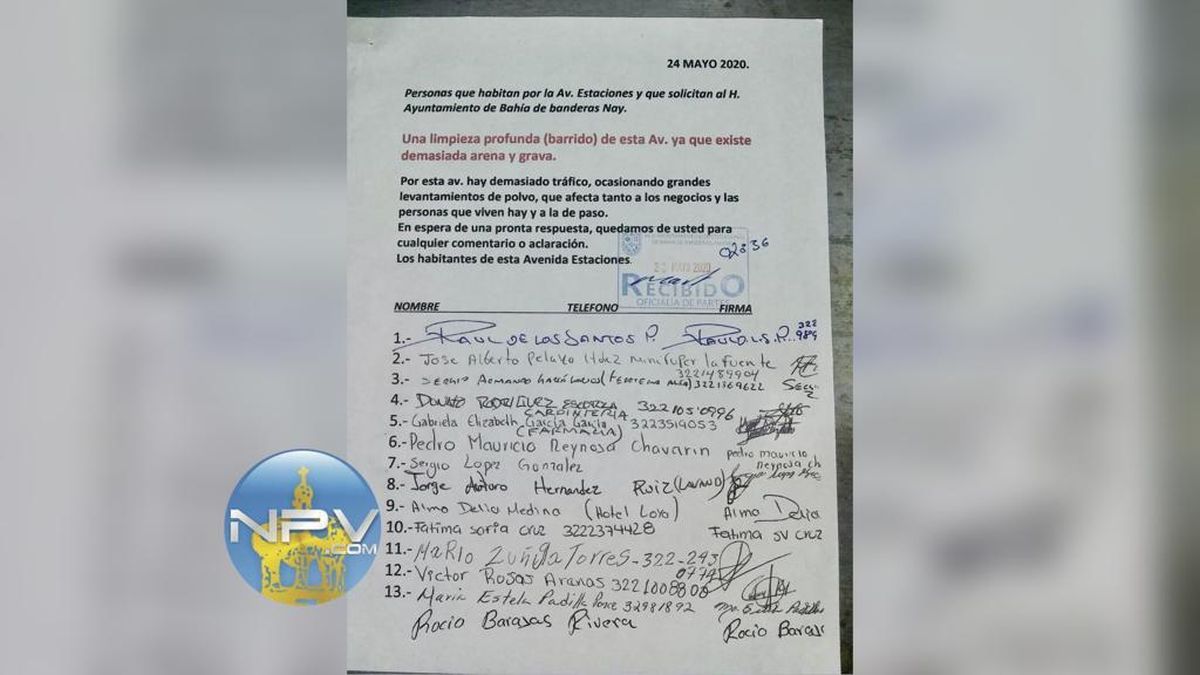 24 MAYO 2020.
Personas que habitan por la Av. Estaciones y que solicitan al H.
Ayuntamiento de Bahía de banderas Nay.
Una limpieza profunda (barrido) de esta Av. ya que existe
demasiada arena y grava.
Por esta av. hay demasiado tráfico, ocasionando grandes
levantamientos de polvo, que afecta tanto a los negocios y las
personas que viven hay y a la de paso.
En espera de una pronta respuesta, quedamos de usted para
cualquier comentario o aclaración.
Los habitantes de esta Avenida Estaciones.
02336
MAYO 2020
RECIBIDO
OFICIALIA DE PARTES
NOMBRE TELEFONO FIRMA
1.- RAUL DE LOS SANTOS P. RAUL D.L.S.P... 322
2.- Jose Alberto Pelayo Hdez minisuper la fuente
3.- SERGIO ARMANDO 3221489904 3221369622
4.- DONATO RODRIGUEZ CARPINTERIA 3221050996
5.- Gabriela Elizabeth García García (FARMACIA) 3223519053
6.- Pedro Mauricio Reynosa Chavarin pedro mauricio reynosa ch
7.- Sergio Lopez Gonzalez
8.- Jorge Arturo Hernandez Ruiz (LAVAND)
9.- Alma Delia Medina (Hotel Loro) Alma Delia
10.- Fatima soria cruz 3222374428 Fatima SV CRUZ
11.- MaRIO Zuñiga Torres - 322-293 0774
12.- Victor Rosas Aranas 3221008808
13.- Maria Estela Padilla Ponce 32981892
Rocio Barajas Rivera Rocio Baraj
NPV.COM